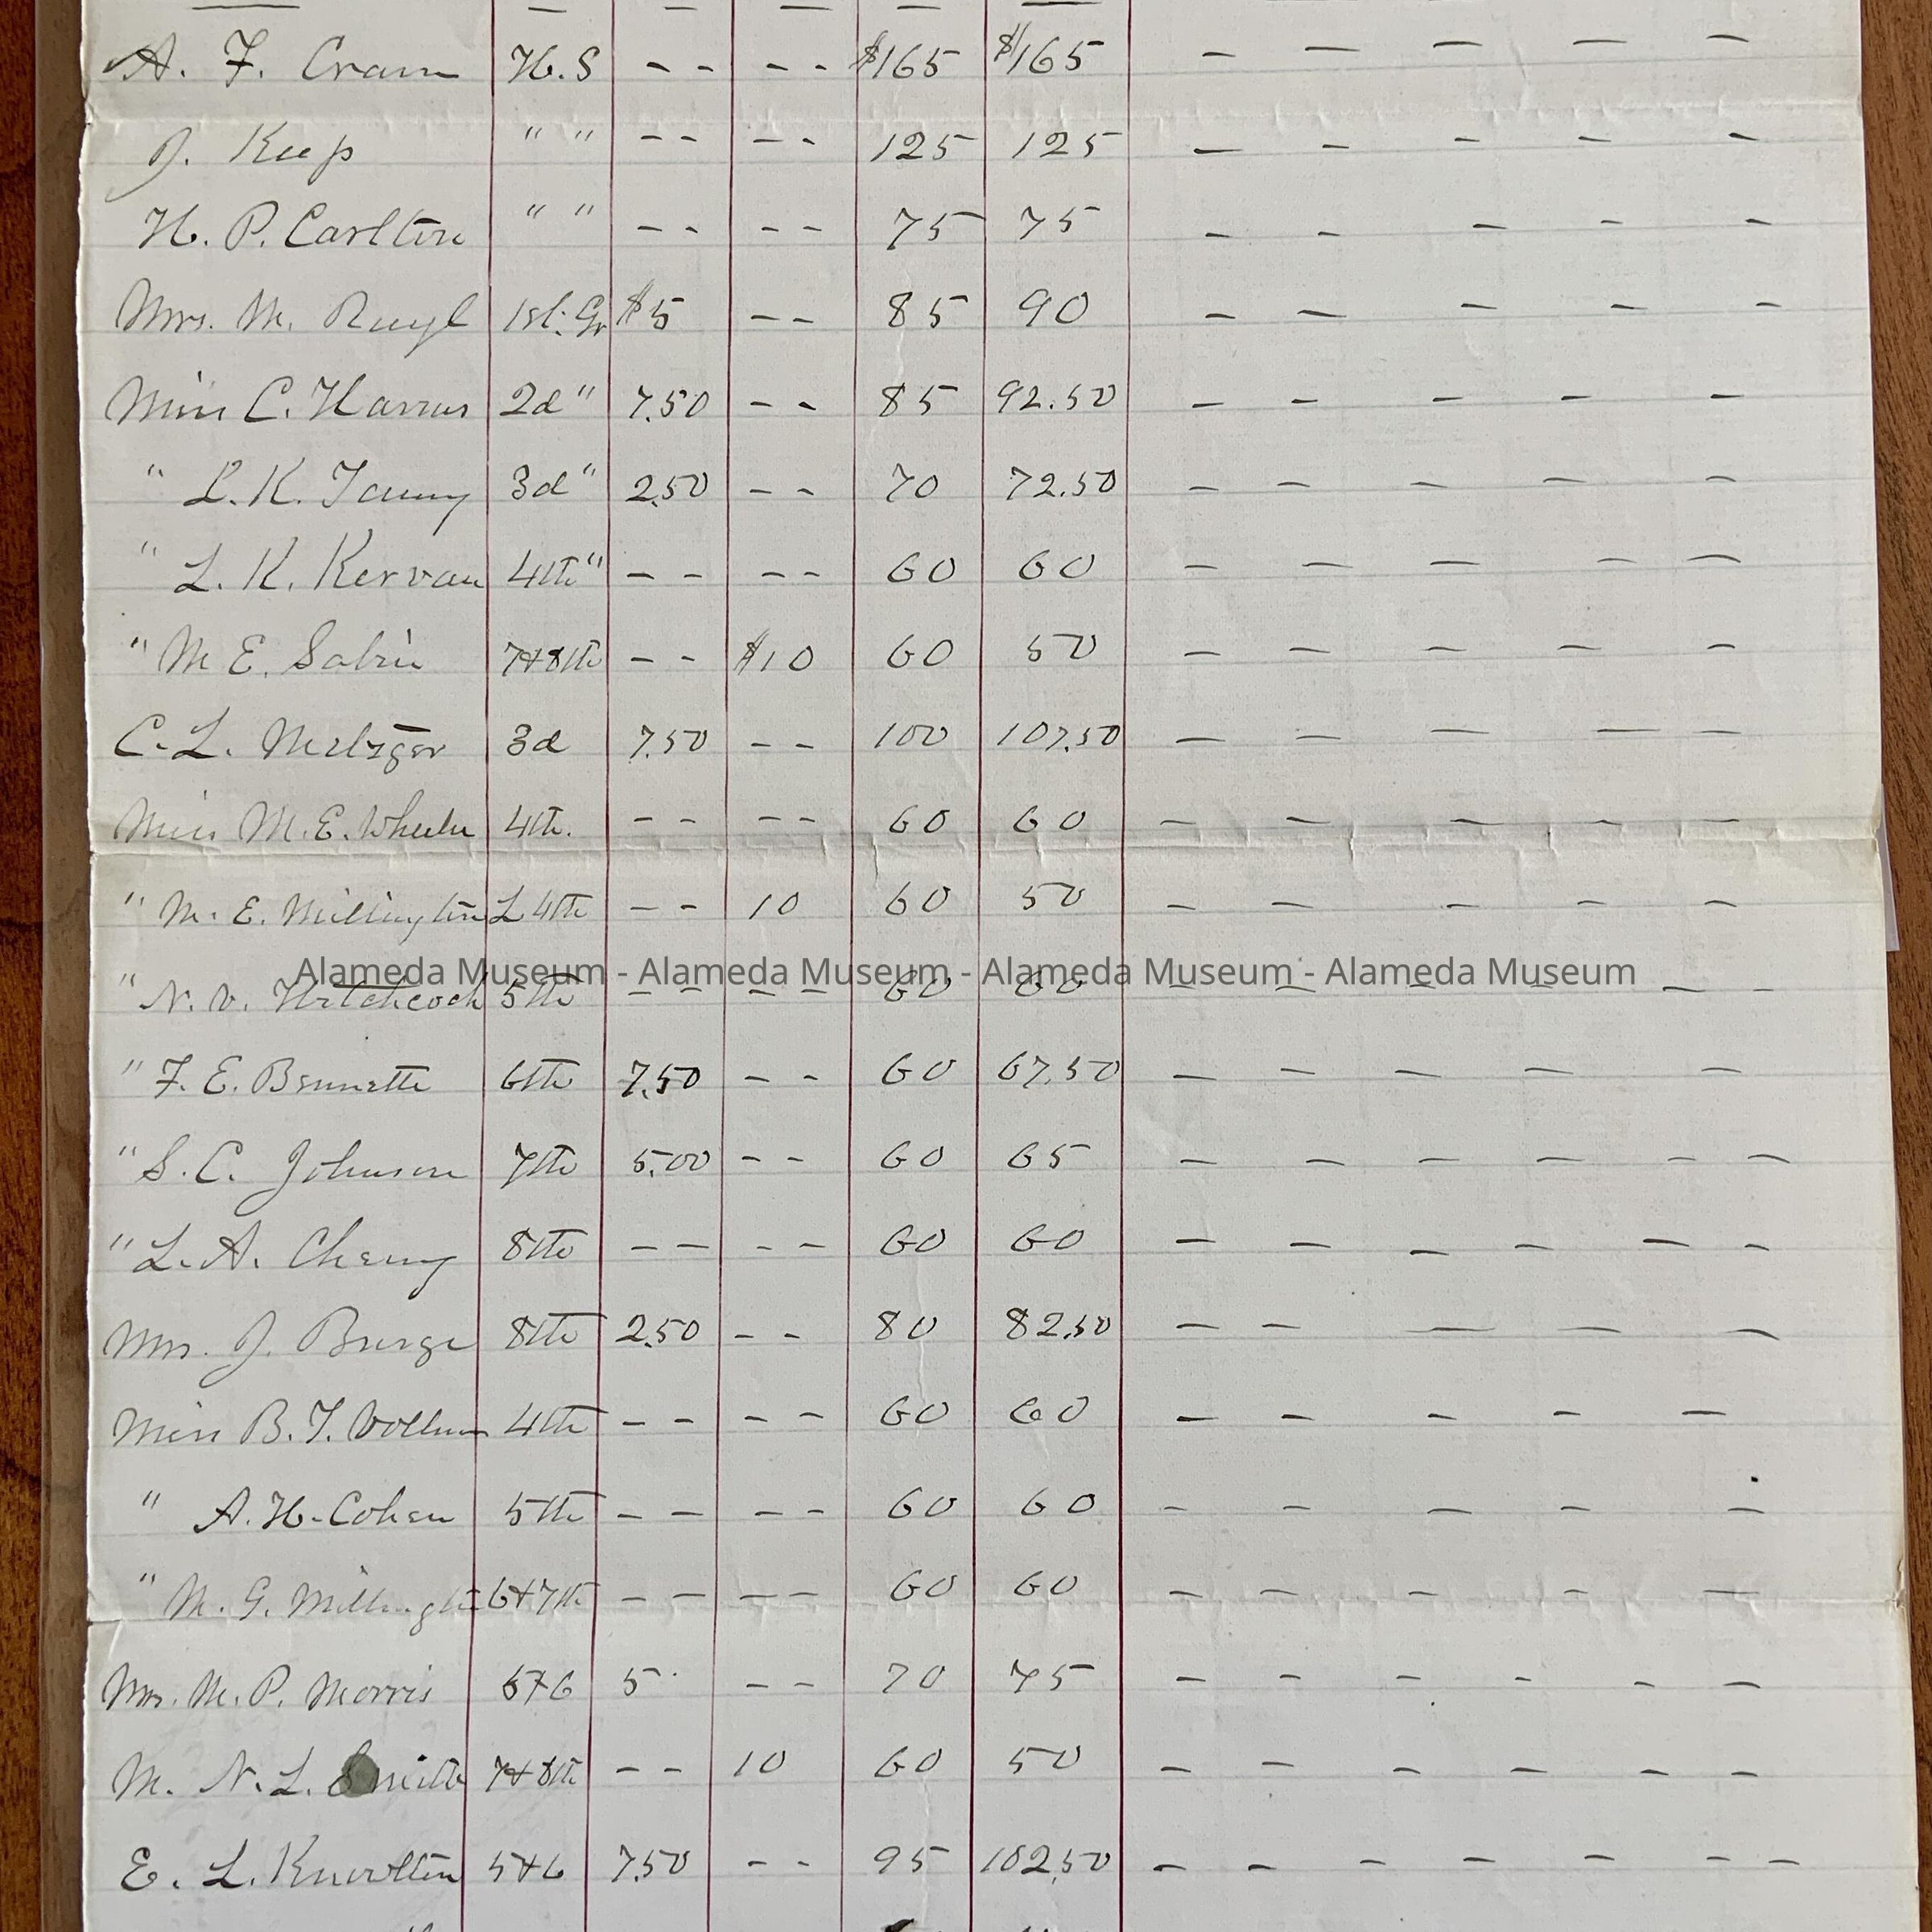 A. F. Cram H.S -- -- $165 $165 - - - - -
J. Keep " " -- -- 125 125 - - - - -
H. P. Carlton " " -- -- 75 75 - - - - -
Mrs. M. 1st. Gr $5 -- 85 90 - - - - -
Miss C. Harris 2d " 7.50 -- 85 92.50 - - - - -
" L. K. 3d " 2.50 -- 70 72.50 - - - - -
" L. K. Kervan 4th " -- -- 60 60 - - - - -
" M E. Sabin 7+8th -- $10 60 50 - - - - -
C. L. Metzger 3d 7.50 -- 100 107.50 - - - - -
Miss M. E. Wheeler 4th. -- -- 60 60 - - - - -
" M. E. Millington L 4th -- 10 60 50 - - - - -
Alameda Museum - Alameda Museum - Alameda Museum - Alameda Museum
" N. V. Hitchcock 5th -- -- 60 60 - - - - - -
" F. E. Bennette 6th 7.50 -- 60 67.50 - - - - -
" S. C. Johnson 7th 5.00 -- 60 65 - - - - - -
" L. A. Cheney 8th -- -- 60 60 - - - - - -
Mrs. J. Burge 8th 2.50 -- 80 82.50 - - - - -
Miss B. T. 4th -- -- 60 60 - - - - -
" A. H. Cohen 5th -- -- 60 60 - - - - -
" M. G. Millington 6+7th -- -- 60 60 - - - - -
Mrs. M. P. Morris 5+6 5 -- 70 75 - - - - - -
M. N. L. Smith 7+8th -- 10 60 50 - - - - - -
E. L. Knowlton 5+6 7.50 -- 95 102.50 - - - - - - -